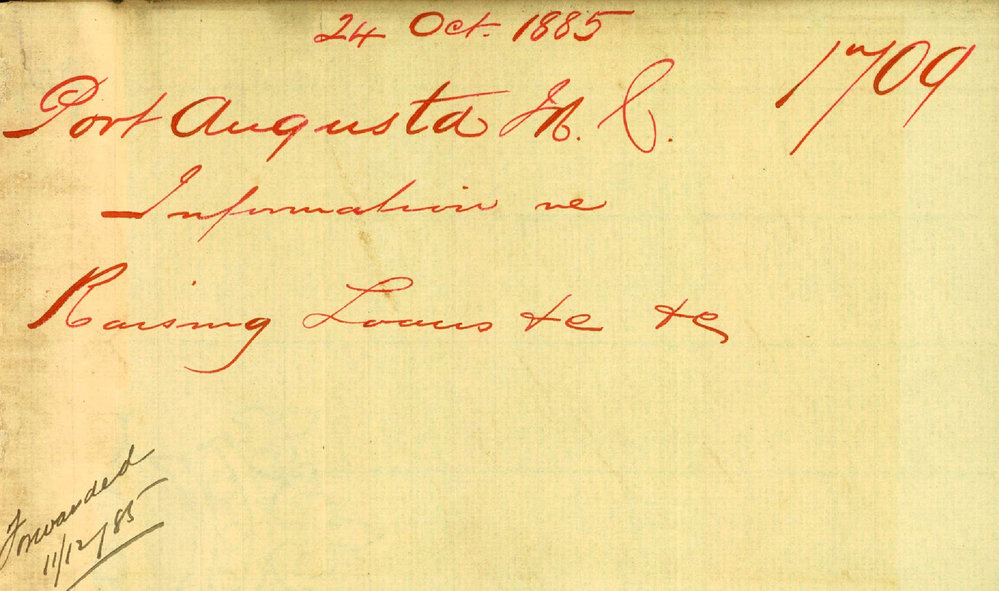 24 Oct. 1885
1709
Port Augusta M. C.
Information re
Raising Loans &c &c
Forwarded
11/12/85